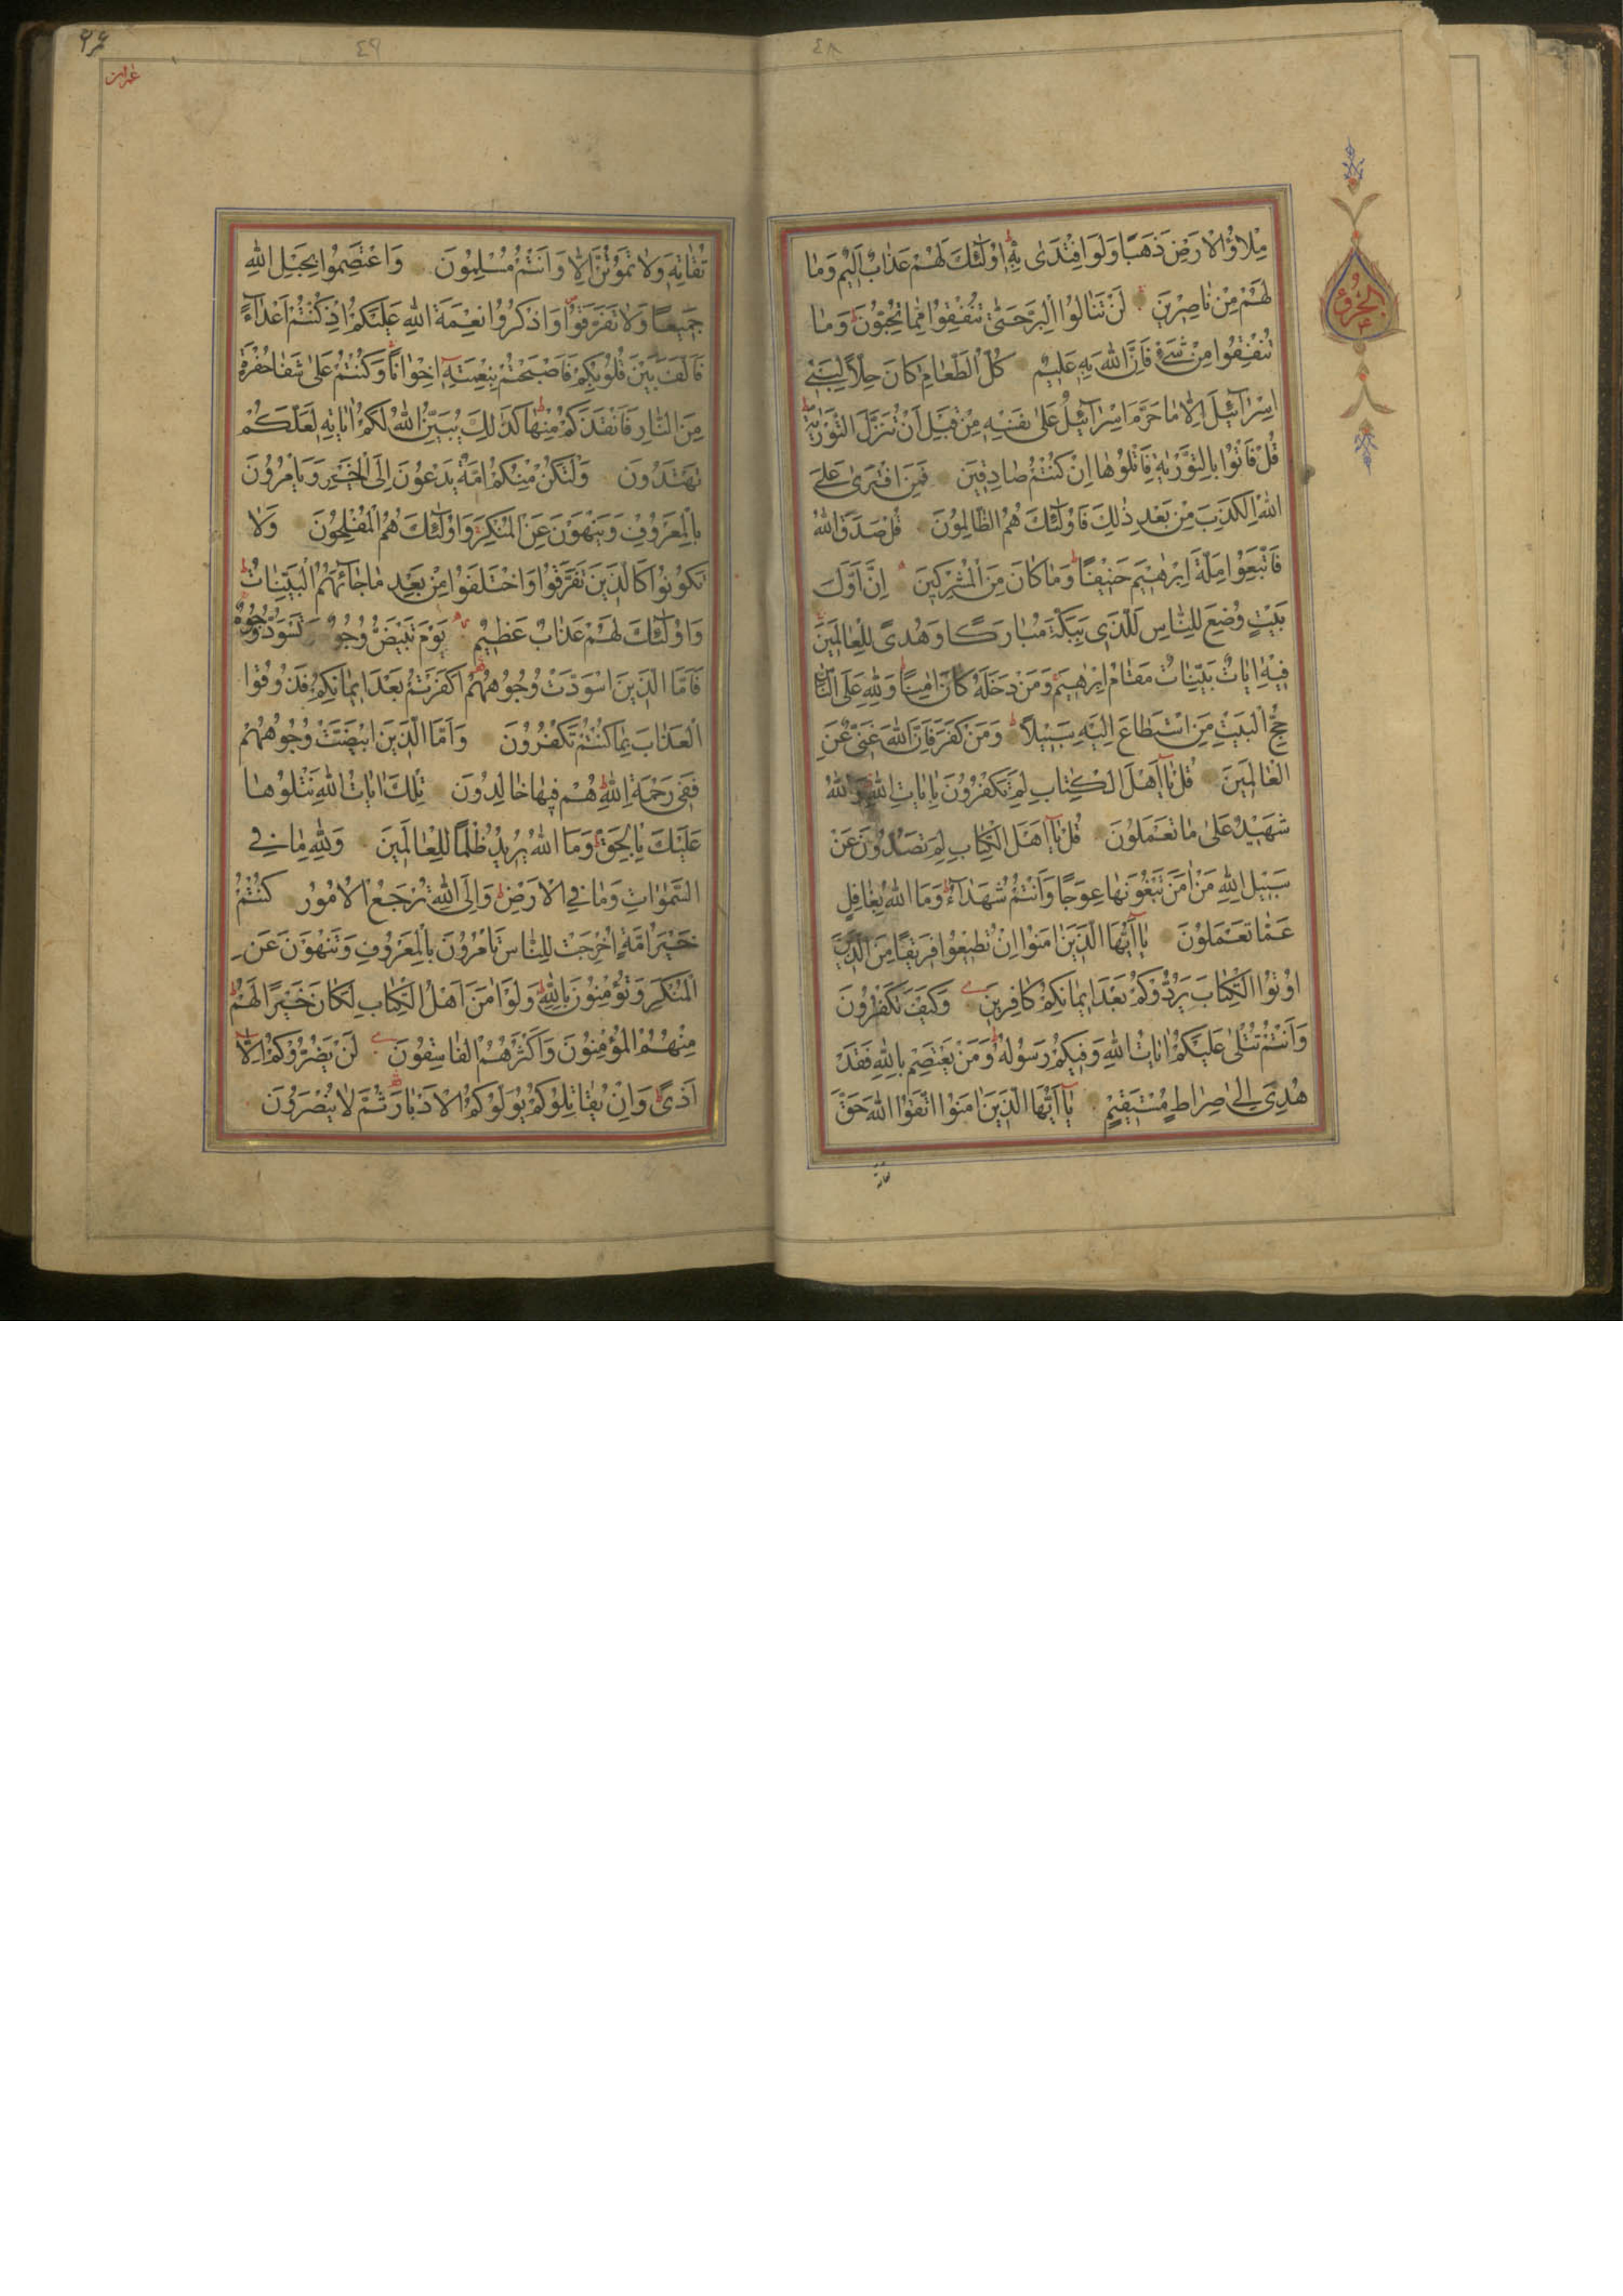 ٤٨
الجزؤ
٤
مِلاؤُ الْاَرْضِ ذَهَبًا وَلَوِ افْتَدٰى بِهٖ اُولٰٓئِكَ لَهُمْ عَذَابٌ اَلِيمٌ وَمٰا
لَهُمْ مِنْ نٰاصِرِينَ لَنْ تَنٰالُوا الْبِرَّ حَتّٰى تُنْفِقُوا مِمّٰا تُحِبُّونَ وَمٰا
تُنْفِقُوا مِنْ شَيْءٍ فَاِنَّ اللّٰهَ بِهٖ عَلِيمٌ كُلُّ الطَّعٰامِ كٰانَ حِلاًّ لِبَنِي
اِسْرٰٓائِيلَ اِلّٰا مٰا حَرَّمَ اِسْرٰٓائِيلُ عَلٰى نَفْسِهٖ مِنْ قَبْلِ اَنْ تُنَزَّلَ التَّوْرٰيةُ
قُلْ فَأْتُوا بِالتَّوْرٰيةِ فَاتْلُوهٰا اِنْ كُنْتُمْ صٰادِقِينَ فَمَنِ افْتَرٰى عَلَى
اللّٰهِ الْكَذِبَ مِنْ بَعْدِ ذٰلِكَ فَاُولٰٓئِكَ هُمُ الظّٰالِمُونَ قُلْ صَدَقَ اللّٰهُ
فَاتَّبِعُوا مِلَّةَ اِبْرٰهِيمَ حَنِيفًا وَمٰا كٰانَ مِنَ الْمُشْرِكِينَ اِنَّ اَوَّلَ
بَيْتٍ وُضِعَ لِلنّٰاسِ لَلَّذِي بِبَكَّةَ مُبٰارَكًا وَهُدًى لِلْعٰالَمِينَ
فِيهِ اٰيٰاتٌ بَيِّنٰاتٌ مَقٰامُ اِبْرٰهِيمَ وَمَنْ دَخَلَهُ كٰانَ اٰمِنًا وَلِلّٰهِ عَلَى النّٰاسِ
حِجُّ الْبَيْتِ مَنِ اسْتَطٰاعَ اِلَيْهِ سَبِيلاً وَمَنْ كَفَرَ فَاِنَّ اللّٰهَ غَنِيٌّ عَنِ
الْعٰالَمِينَ قُلْ يٰٓا اَهْلَ الْكِتٰابِ لِمَ تَكْفُرُونَ بِاٰيٰاتِ اللّٰهِ وَاللّٰهُ
شَهِيدٌ عَلٰى مٰا تَعْمَلُونَ قُلْ يٰٓا اَهْلَ الْكِتٰابِ لِمَ تَصُدُّونَ عَنْ
سَبِيلِ اللّٰهِ مَنْ اٰمَنَ تَبْغُونَهٰا عِوَجًا وَاَنْتُمْ شُهَدٰآءُ وَمَا اللّٰهُ بِغٰافِلٍ
عَمّٰا تَعْمَلُونَ يٰٓا اَيُّهَا الَّذِينَ اٰمَنُوا اِنْ تُطِيعُوا فَرِيقًا مِنَ الَّذِينَ
اُوتُوا الْكِتٰابَ يَرُدُّوكُمْ بَعْدَ اِيمٰانِكُمْ كٰافِرِينَ وَكَيْفَ تَكْفُرُونَ
وَاَنْتُمْ تُتْلٰى عَلَيْكُمْ اٰيٰاتُ اللّٰهِ وَفِيكُمْ رَسُولُهُ وَمَنْ يَعْتَصِمْ بِاللّٰهِ فَقَدْ
هُدِيَ اِلٰى صِرٰاطٍ مُسْتَقِيمٍ يٰٓا اَيُّهَا الَّذِينَ اٰمَنُوا اتَّقُوا اللّٰهَ حَقَّ
٤٩
تُقٰاتِهٖ وَلٰا تَمُوتُنَّ اِلّٰا وَاَنْتُمْ مُسْلِمُونَ وَاعْتَصِمُوا بِحَبْلِ اللّٰهِ
جَمِيعًا وَلٰا تَفَرَّقُوا وَاذْكُرُوا نِعْمَةَ اللّٰهِ عَلَيْكُمْ اِذْ كُنْتُمْ اَعْدٰٓاءً
فَاَلَّفَ بَيْنَ قُلُوبِكُمْ فَاَصْبَحْتُمْ بِنِعْمَتِهٖ اِخْوٰانًا وَكُنْتُمْ عَلٰى شَفٰا حُفْرَةٍ
مِنَ النّٰارِ فَاَنْقَذَكُمْ مِنْهٰا كَذٰلِكَ يُبَيِّنُ اللّٰهُ لَكُمْ اٰيٰاتِهٖ لَعَلَّكُمْ
تَهْتَدُونَ وَلْتَكُنْ مِنْكُمْ اُمَّةٌ يَدْعُونَ اِلَى الْخَيْرِ وَيَأْمُرُونَ
بِالْمَعْرُوفِ وَيَنْهَوْنَ عَنِ الْمُنْكَرِ وَاُولٰٓئِكَ هُمُ الْمُفْلِحُونَ وَلٰا
تَكُونُوا كَالَّذِينَ تَفَرَّقُوا وَاخْتَلَفُوا مِنْ بَعْدِ مٰا جٰٓائَهُمُ الْبَيِّنٰاتُ
وَاُولٰٓئِكَ لَهُمْ عَذٰابٌ عَظِيمٌ يَوْمَ تَبْيَضُّ وُجُوهٌ وَتَسْوَدُّ وُجُوهٌ
فَاَمَّا الَّذِينَ اسْوَدَّتْ وُجُوهُهُمْ اَكَفَرْتُمْ بَعْدَ اِيمٰانِكُمْ فَذُوقُوا
الْعَذٰابَ بِمٰا كُنْتُمْ تَكْفُرُونَ وَاَمَّا الَّذِينَ ابْيَضَّتْ وُجُوهُهُمْ
فَفِي رَحْمَةِ اللّٰهِ هُمْ فِيهٰا خٰالِدُونَ تِلْكَ اٰيٰاتُ اللّٰهِ نَتْلُوهٰا
عَلَيْكَ بِالْحَقِّ وَمَا اللّٰهُ يُرِيدُ ظُلْمًا لِلْعٰالَمِينَ وَلِلّٰهِ مٰا فِي
السَّمٰوٰاتِ وَمٰا فِي الْاَرْضِ وَاِلَى اللّٰهِ تُرْجَعُ الْاُمُورُ كُنْتُمْ
خَيْرَ اُمَّةٍ اُخْرِجَتْ لِلنّٰاسِ تَأْمُرُونَ بِالْمَعْرُوفِ وَتَنْهَوْنَ عَنِ
الْمُنْكَرِ وَتُؤْمِنُونَ بِاللّٰهِ وَلَوْ اٰمَنَ اَهْلُ الْكِتٰابِ لَكٰانَ خَيْرًا لَهُمْ
مِنْهُمُ الْمُؤْمِنُونَ وَاَكْثَرُهُمُ الْفٰاسِقُونَ لَنْ يَضُرُّوكُمْ اِلّٰا
اَذًى وَاِنْ يُقٰاتِلُوكُمْ يُوَلُّوكُمُ الْاَدْبٰارَ ثُمَّ لٰا يُنْصَرُونَ